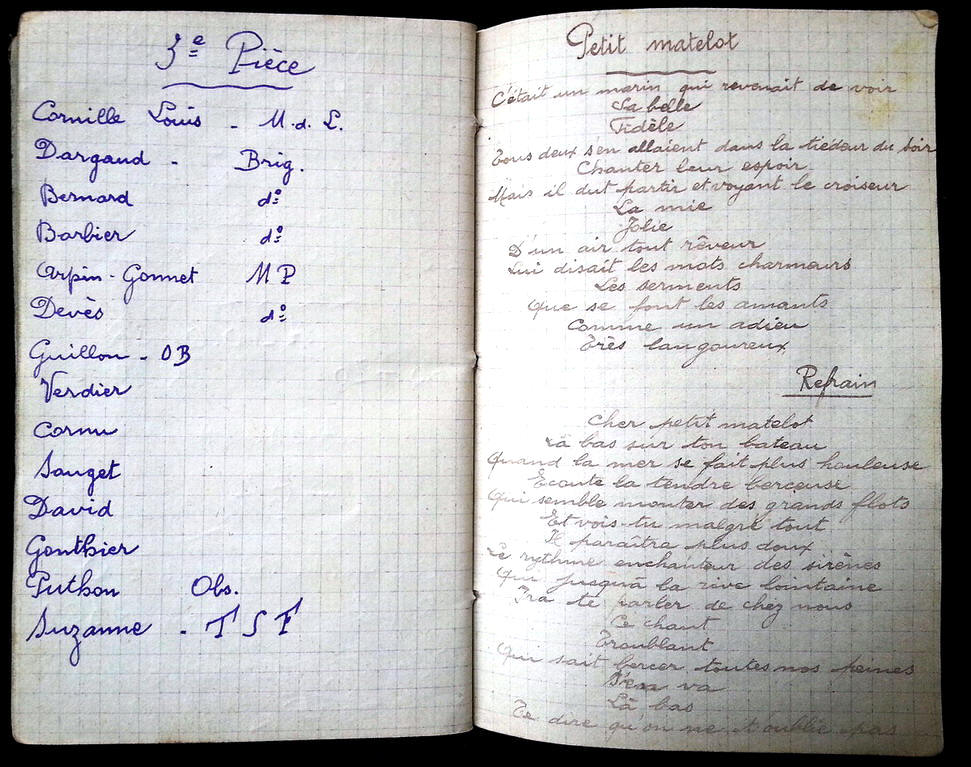 3e Pièce
Cornille Louis - M.d.L.
Dargaud - Brig.
Bernard do
Barbier do
Arpin-Gonnet MP
Devès do
Guillon - OB
Verdier
Cornu
Sauget
David
Gonthier
Puthon Obs.
Suzanne - TSF
Petit matelot
C'était un marin qui revenait de voir
Sa belle
Fidèle
Tous deux s'en allaient dans la tiédeur du soir
Chanter leur espoir
Mais il dut partir et voyant le croiseur
La mie
Jolie
D'un air tout rêveur
Lui disait les mots charmeurs
Les serments
Que se font les amants
Comme un adieu
Très langoureux
Refrain
Cher petit matelot
Là bas sur ton bateau
Quand la mer se fait plus houleuse
Ecoute la tendre berceuse
Qui semble monter des grands flots
Et vois-tu malgré tout
Il paraîtra plus doux
Le rythme enchanteur des sirènes
Qui jusqu'à la rive lointaine
Ira te parler de chez nous
Ce chant
Troublant
Qui sait bercer toutes nos peines
S'en va
Là bas
Te dire qu'on ne t'oublie pas